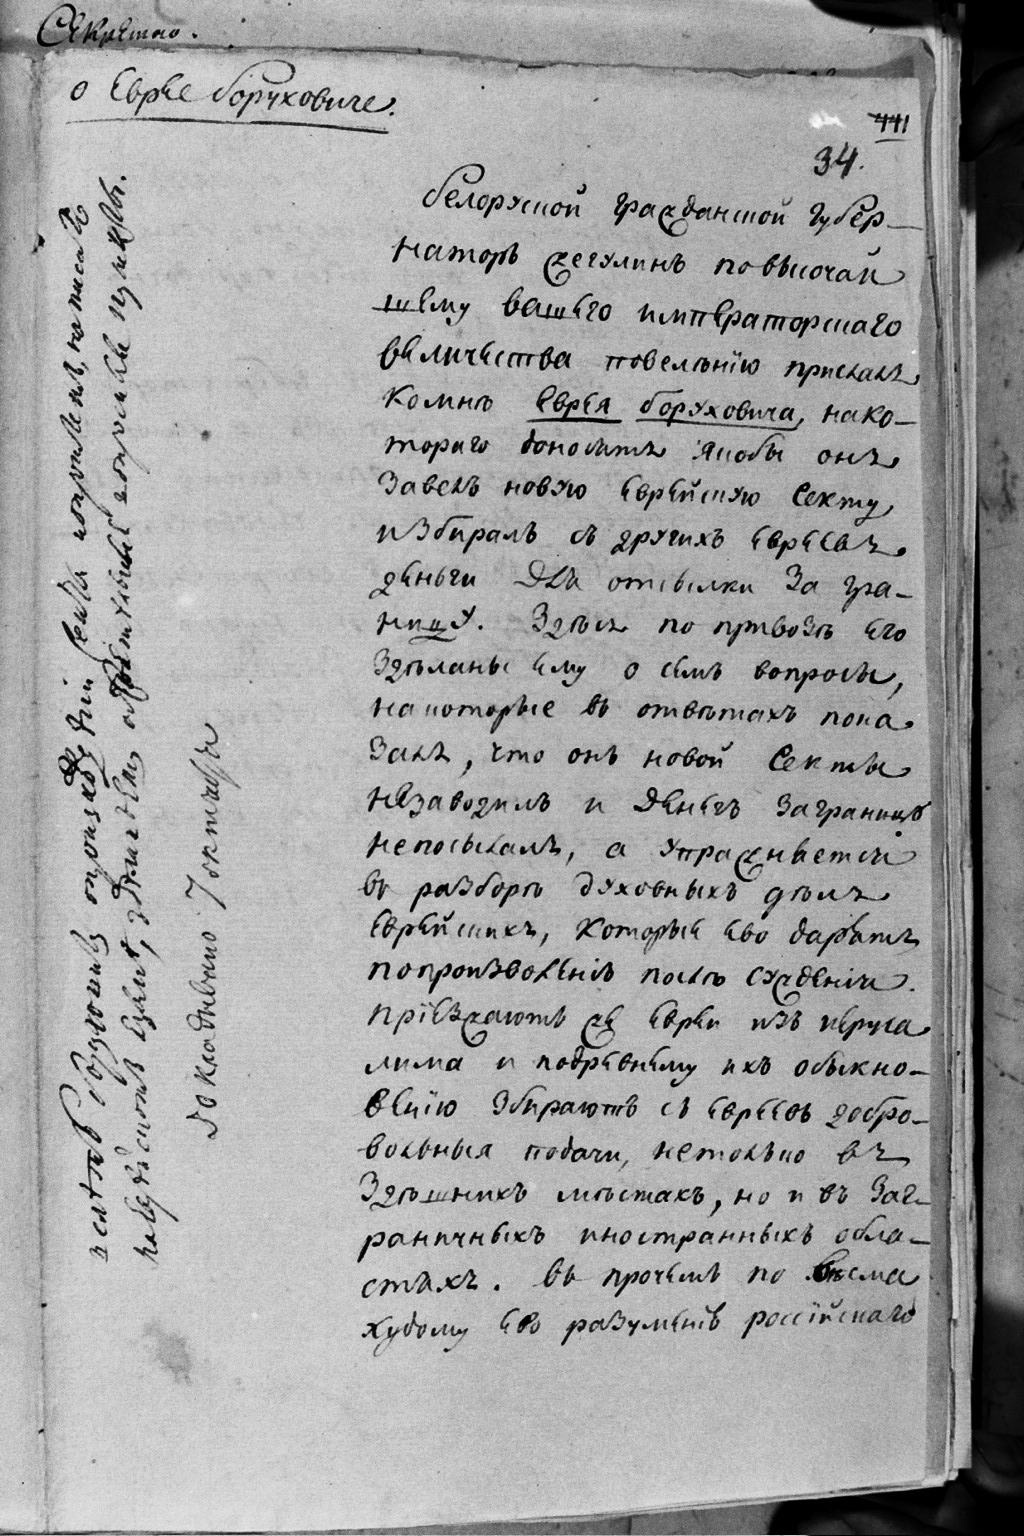 Секретно.
о Еврее Боруховиче.
441
34.
Белоруской гражданской губер-
наторъ жегулинъ по высочай
шему вашего императорскаго
величества повелѣнїю прислалъ
комнѣ Еврея Боруховича, нако-
тораго доносятъ якобы онъ
завелъ новую еврейскую секту
и збиралъ съ другихъ евреевъ
деньги для отсылки за гра-
ницу. Здѣсь по привозѣ его
здѣланы ему о семъ вопросы,
на которые въ отвѣтахъ пока
залъ, что онъ новой секты
незаводилъ и денегъ заграницу
непосылалъ, а упражняется
въ разборѣ духовныхъ дѣлъ
еврейскихъ, которые ево дарятъ
попроизволенію послѣ сужденія.
прїезжаютъ же евреи изъ иеруса
лима и подревнему ихъ обыкно-
венїю збираютъ съ евреевъ добро-
вольныя подачи, нетолько въ
здѣшнихъ мѣстахъ, но и въ заг-
раничныхъ иностранныхъ обла-
стяхъ. въ прочемъ по весма
худому ево разуменію россїйскаго
докладывано 7 октября